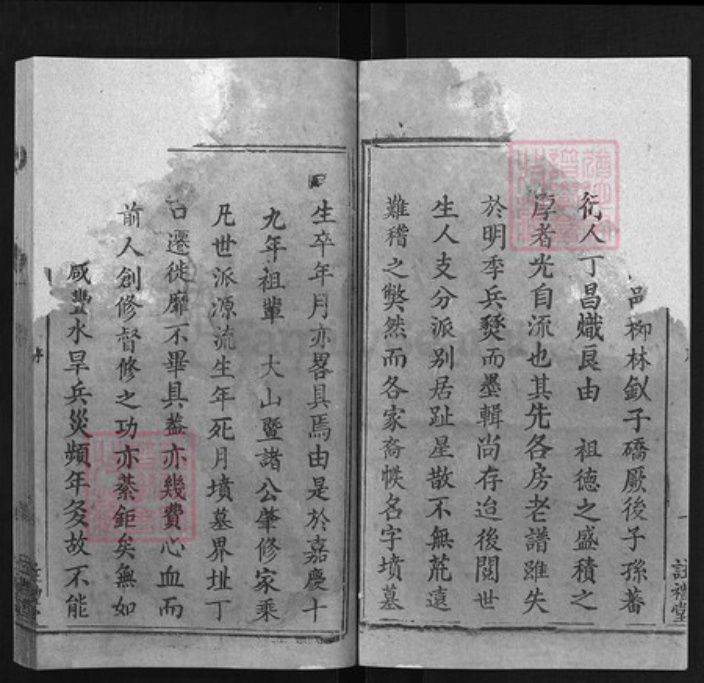 邑柳林釱子磽厥後子孫蕃
衍人丁昌熾良由 祖德之盛積之
厚者光自流也其先各房老譜雖失
於明季兵燹而墨輯尚存迨後閱世
生人支分派别居趾星散不無荒遠
難稽之獘然而各家裔帙名字墳墓
生卒年月亦畧具焉由是於嘉慶十
九年祖輩 大山暨諸公肇修家乘
凡世派源流生年死月墳墓界址丁
口遷徙靡不畢具葢亦幾費心血而
前人創修督修之功亦綦鉅矣無如
咸豐水旱兵災頻年矣故不能
序
禮堂